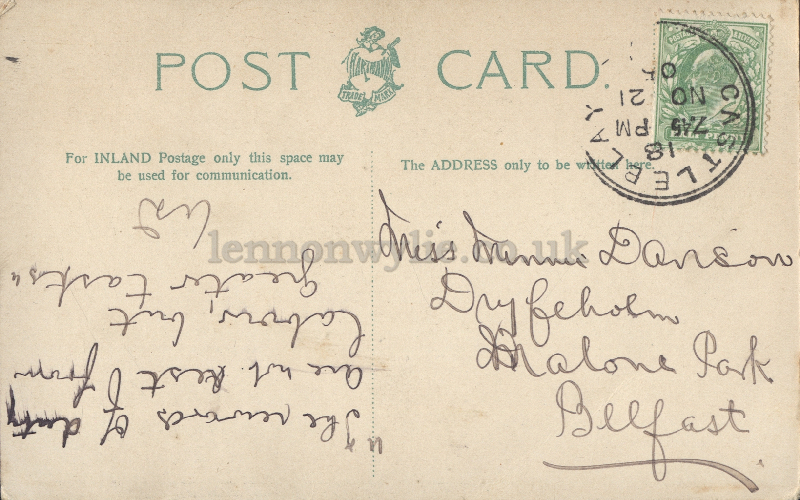 POST CARD.
HARTMANN
TRADE MARK
For INLAND Postage only this space may
be used for communication.
The ADDRESS only to be written here.
CASTLEBLAY
7.45 PM
NO 21
lennonwylie.co.uk
Miss Minnie Davison
Dryfeholm
Malone Park
Belfast
"The rewards of duty
are not rest from
labors, but
greater tasks"